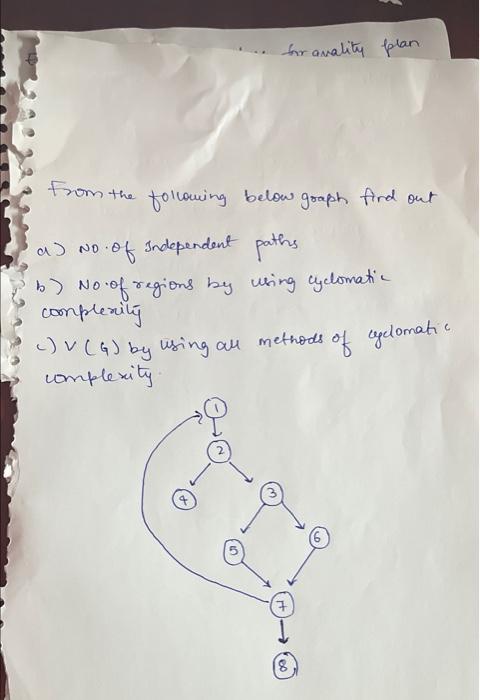 for quality plan
From the following below graph find out
a) NO. of Independent paths
b) No. of regions by using cyclomatic
complexity
c) V(G) by using all methods of cyclomatic
complexity.
1
2
4
3
5
6
7
8